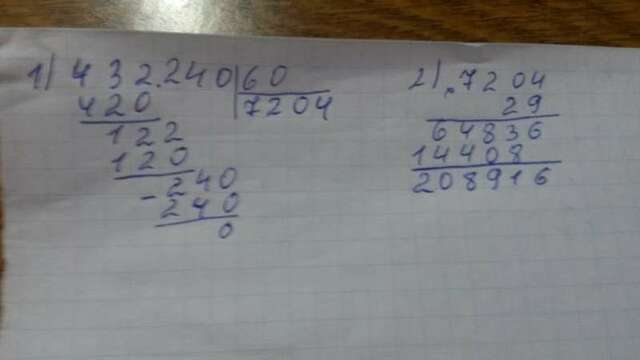 1) 432.240 60
420 7204
122
120
- 240
240
0
2) . 7204
29
64836
14408
208916